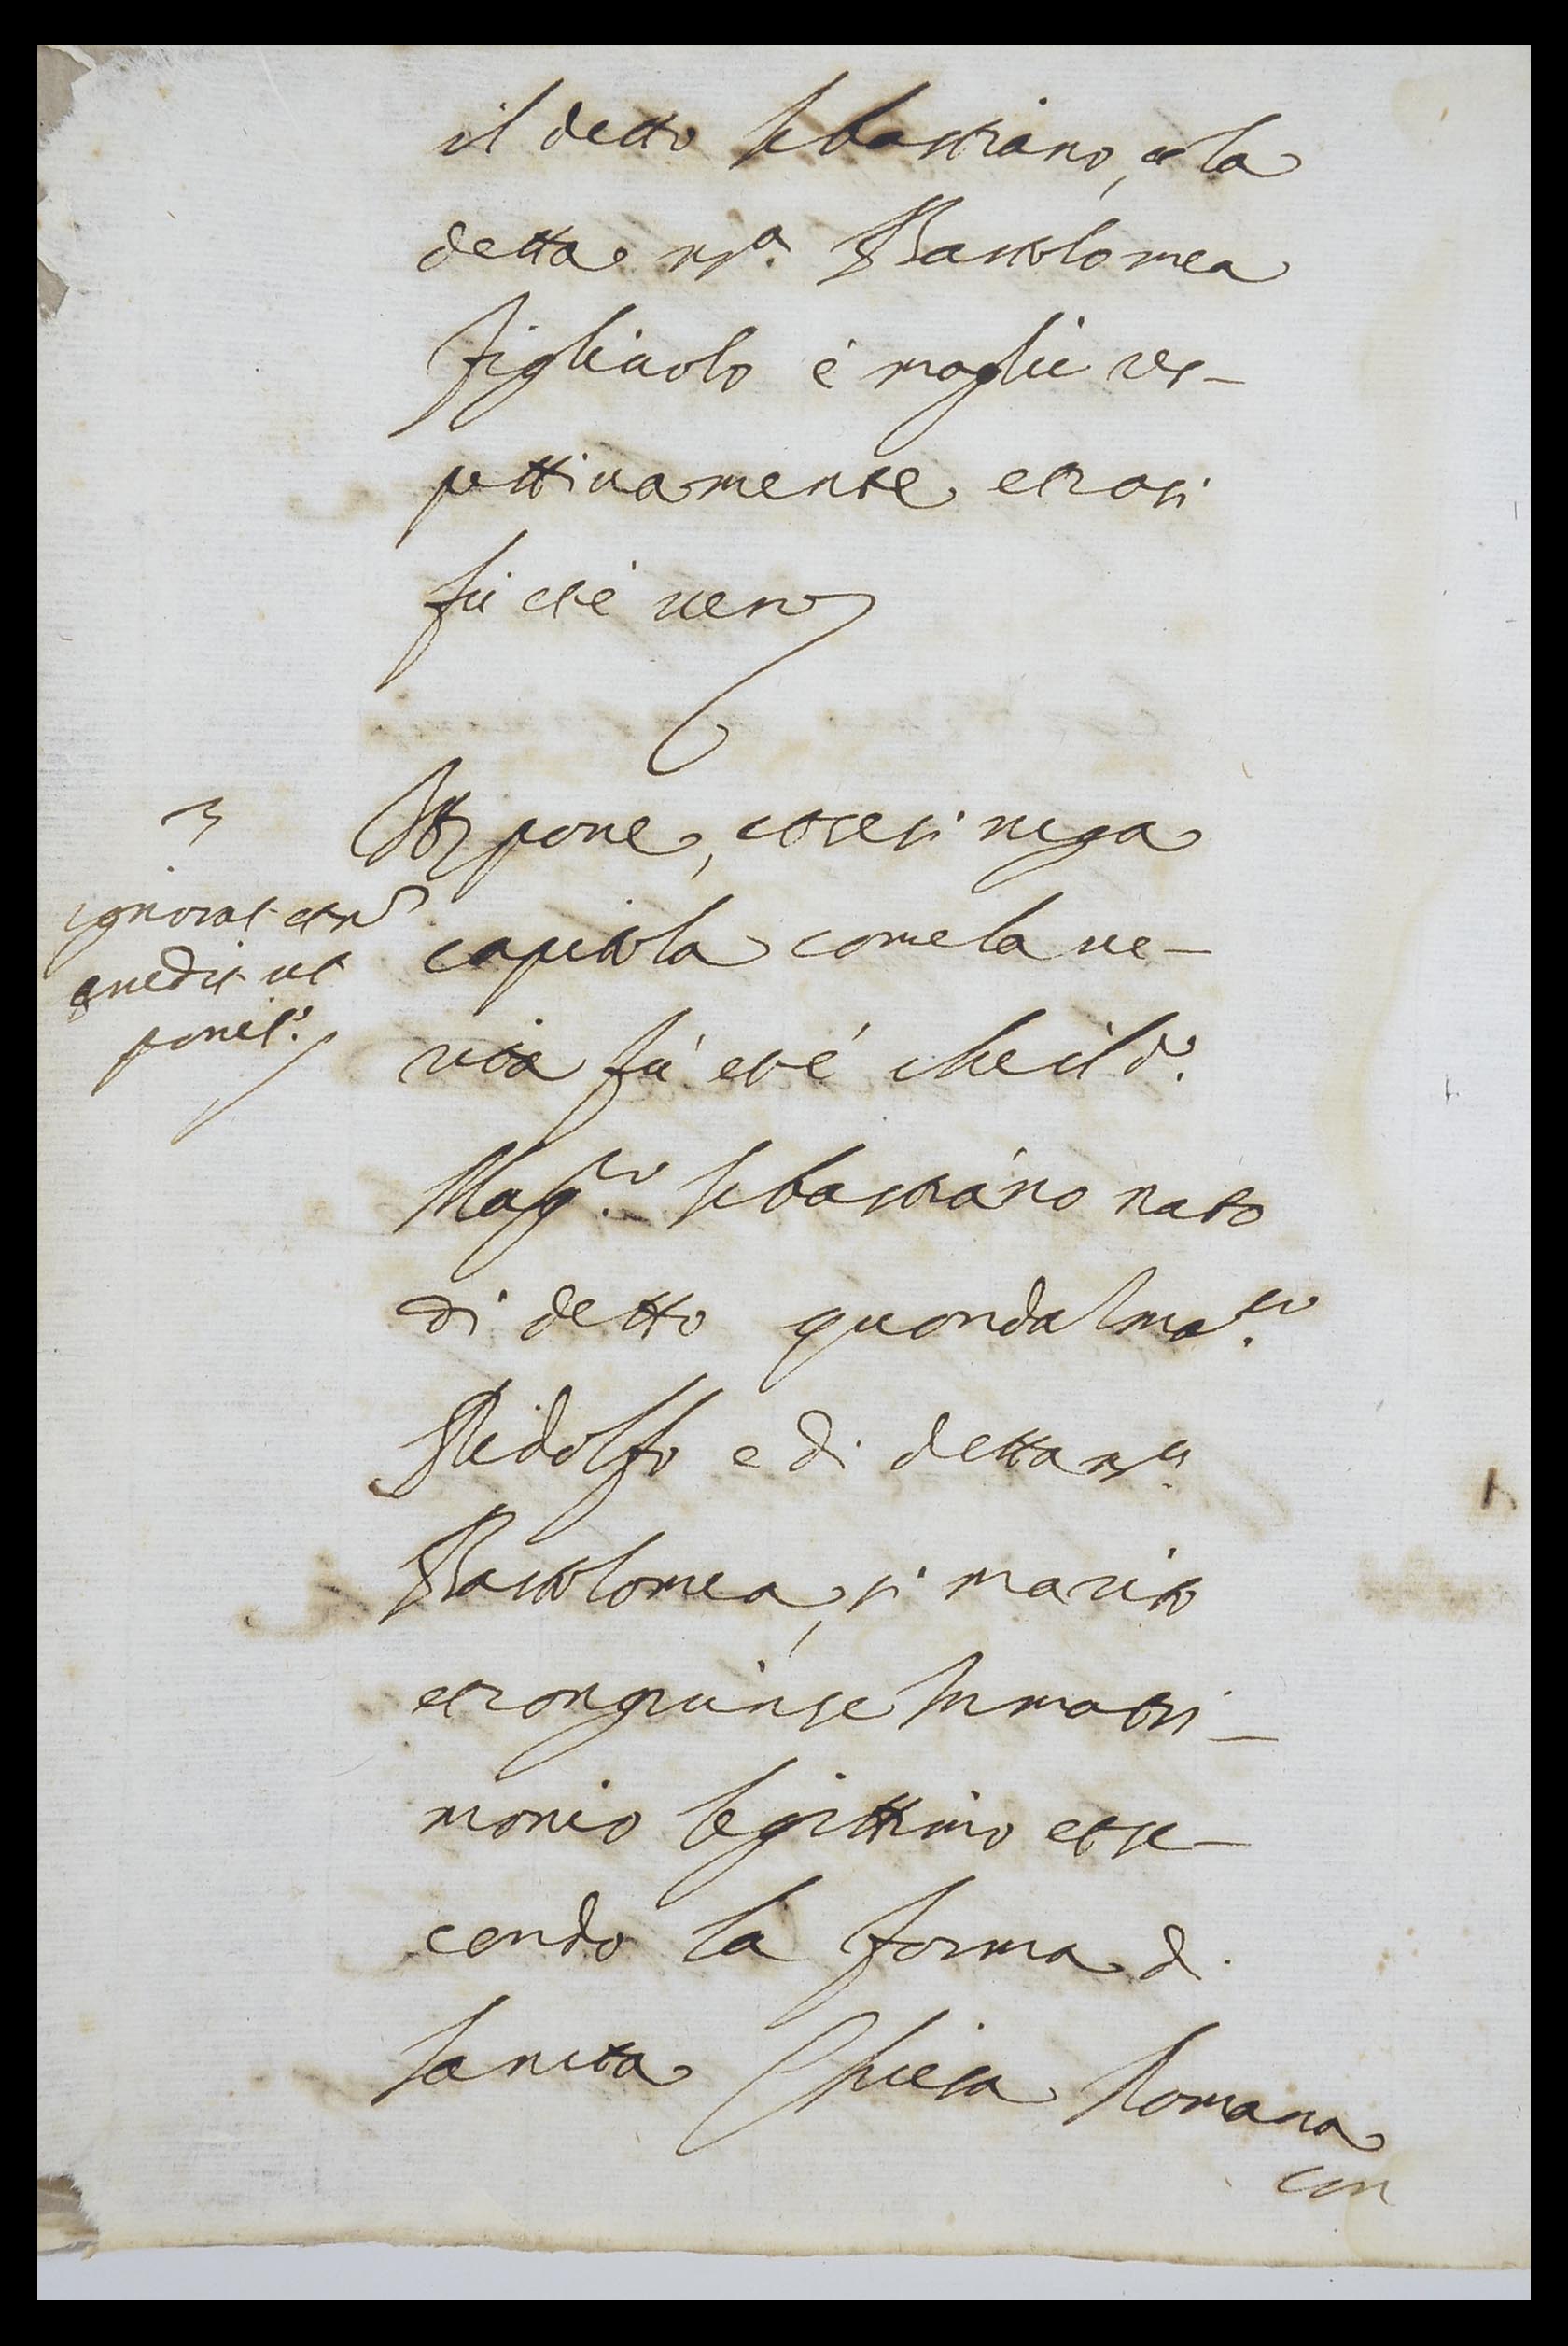 il detto Sebastiano, e la
detta ms.ª Bartolomea
figliuolo è moglie res-
pettiuamente et cosi
fù et é uero
3
It pone, et se si nega
ignorat et n
credit ut
ponit.r
capitola come la ue-
rità fù et é che il d.º
Mag.co Sebastiano nato
di detto quondā mag.co
Ridolfo e di detta ms.ª
Bartolomea, si marito
et congiunse In matri-
monio legittimo et se-
condo la forma di
Santa Chiesa Romana
con